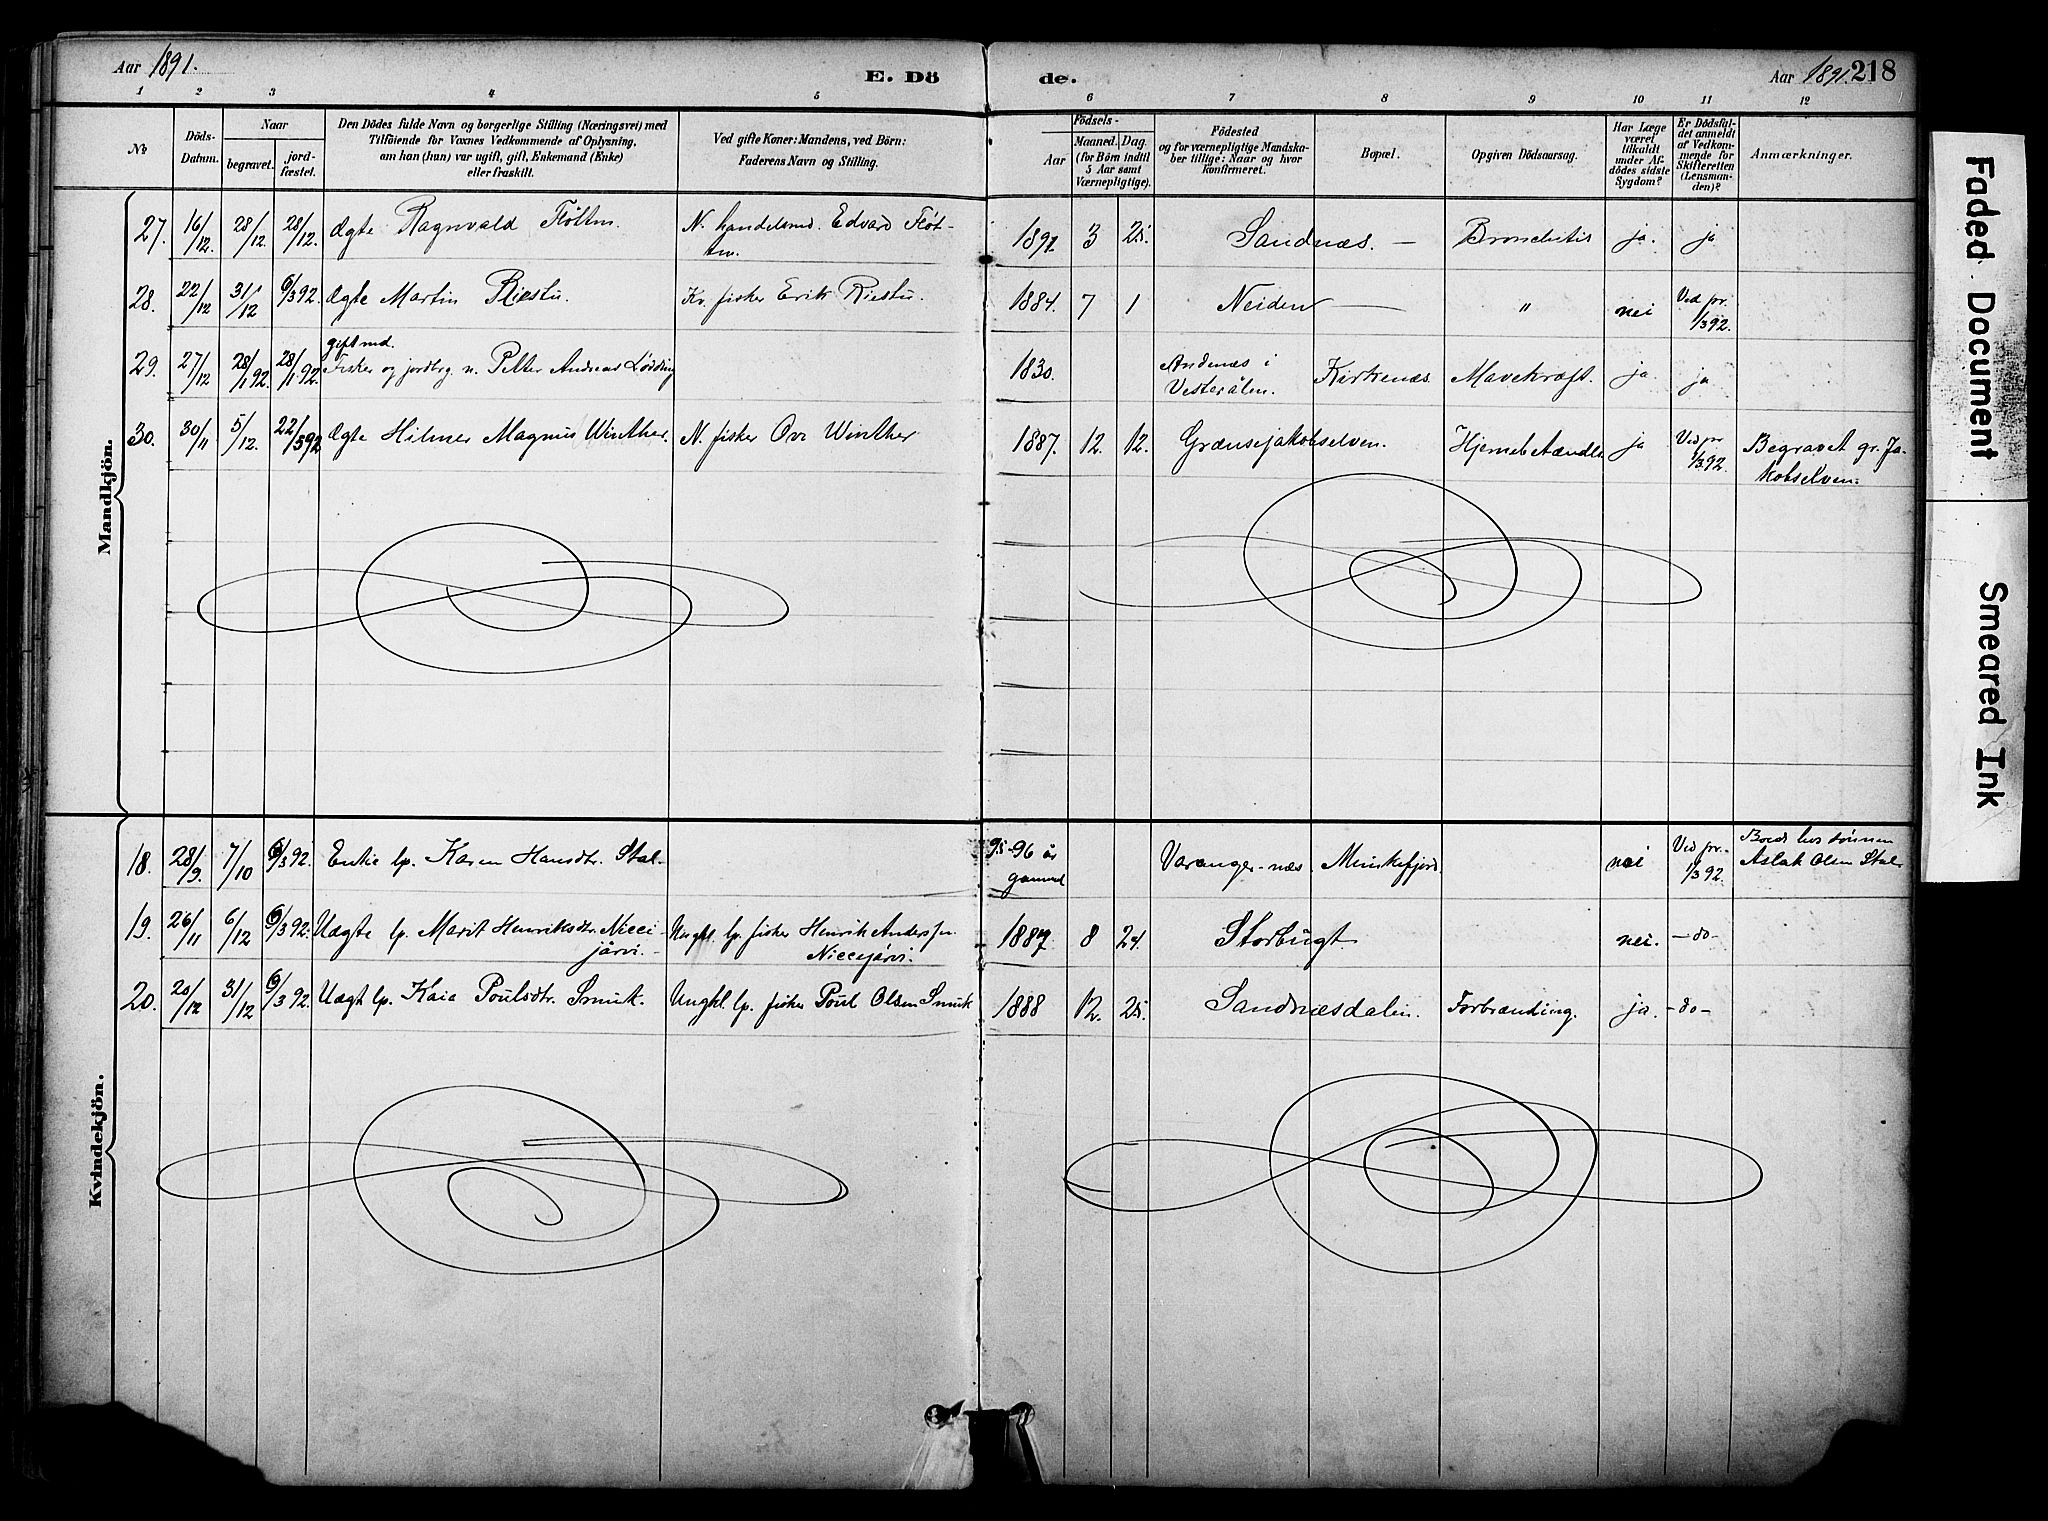 Aar 1891.
E. Dö
de.
Aar 1891.
218
1 2 3 4 5 6 7 8 9 10 11 12
No
Döds-
Datum.
Naar
begravet.
jord-
fæstet.
Den Dödes fulde Navn og borgerlige Stilling (Næringsvei) med
Tilföiende for Voxnes Vedkommende af Oplysning,
om han (hun) var ugift, gift, Enkemand (Enke)
eller fraskilt.
Ved gifte Koner: Mandens, ved Börn:
Faderens Navn og Stilling.
Födsels-
Aar
Maaned.
Dag.
(for Börn indtil
5 Aar samt
Værnepligtige).
Födested
og for værnepligtige Mandska-
ber tillige: Naar og hvor
konfirmeret.
Bopæl.
Opgiven Dödsaarsag.
Har Læge
været
tilkaldt
under Af-
dödes sidste
Sygdom?
Er Dödsfal-
det anmeldt
af Vedkom-
mende for
Skifteretten
(Lensman-
den)?
Anmærkninger.
Mandkjön.
27. 16/12. 28/12. 28/12. Ægte Ragnvald Fløttm. N. handelsmd. Edvard Fløt-
tm.
1891 3 25. Sandnæs. — Bronchitis ja. ja
28. 22/12 31/12 6/3 92. Ægte Martin Riestu. Kv. fisker Erik Riestu. 1884. 7 1 Neiden — " nei Ved pr.
1/3 92.
29. 27/12 28/1 92. 28/1 92. gift md.
Fisker og jordbrg. n. Petter Andreas Lødding 1830. Andenæs i
Vesterålen. Kirkenæs. Mavekræft. ja ja
30. 30/11 5/12. 22/3 92 Ægte Hilmer Magnus Winther. N. fisker Ove Winther 1887. 12. 12. Grænsejakobselven. Hjernebetændls. ja Ved pr
1/3 92. Begravet gr. Ja-
kobselven.
Kvindekjön.
18. 28/9. 7/10 6/3 92. Enke lp. Karen Hansdtr. Stal. 95-96 år
gammel Varanger-næs Munkefjord. nei Ved pr.
1/3 92. Boede hos sønnen
Aslak Olsen Stal
19. 26/11 6/12 6/3 92. Uægte lp. Marit Henriksdtr. Nicci-
järvi. Ungkl. lp. fisker Henrik Anders sn.
Niccijärvi. 1887 8 24 Storbugt nei. —do—
20. 20/12 31/12 6/3 92. Uægt lp. Kaia Poulsdtr. Smuk. Ungkl lp. fisker Poul Olsen Smuk 1888 12. 25. Sandnæsdalen. Forbrænding. ja. —do—
Faded Document
Smeared Ink